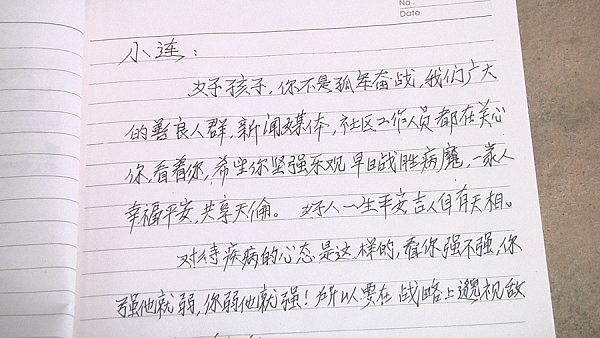 No:
Date
小连：
好孩子，你不是孤军奋战，我们广大
的善良人群，新闻媒体，社区工作人员都在关心
你，看着你，希望你坚强乐观早日战胜病魔，一家人
幸福平安，共享天倫。好人一生平安吉人自有天相。
对待疾病的心态是这样的，看你强不强，你
强他就弱，你弱他就强！所以要在战略上藐视敌